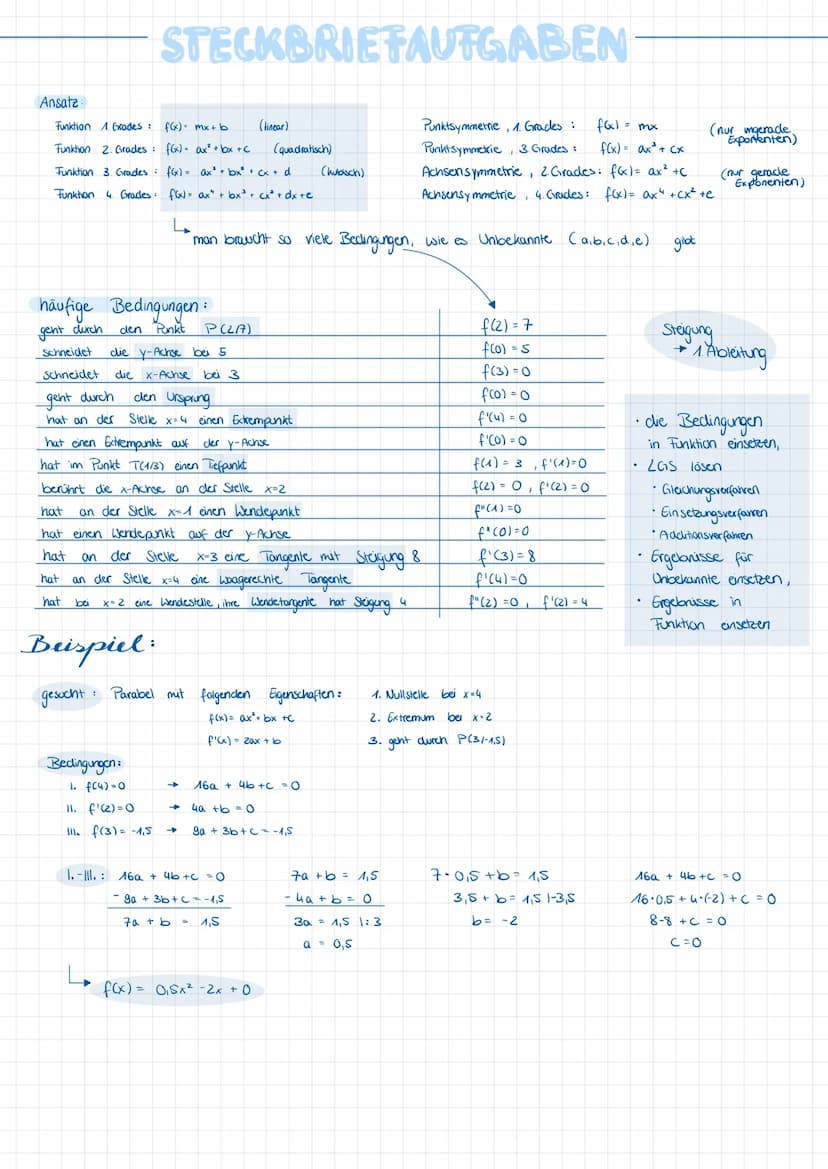 STECKBRIEFAUFGABEN
Ansatz:
Funktion 1. Grades : f(x) = mx + b (linear)
Funktion 2. Grades : f(x) = ax² + bx + c (quadratisch)
Funktion 3. Grades : f(x) = ax³ + bx² + cx + d (kubisch)
Funktion 4. Grades : f(x) = ax⁴ + bx³ + cx² + dx + e
Punktsymmetrie, 1. Grades : f(x) = mx (nur ungerade Exponenten)
Punktsymmetrie, 3. Grades : f(x) = ax³ + cx
Achsensymmetrie, 2. Grades : f(x) = ax² + c (nur gerade Exponenten)
Achsensymmetrie, 4. Grades : f(x) = ax⁴ + cx² + e
man braucht so viele Bedingungen, wie es Unbekannte (a,b,c,d,e) gibt
häufige Bedingungen:
geht durch den Punkt P(2/7) f(2) = 7
schneidet die y-Achse bei 5 f(0) = 5
schneidet die x-Achse bei 3 f(3) = 0
geht durch den Ursprung f(0) = 0
hat an der Stelle x=4 einen Extrempunkt f'(4) = 0
hat einen Extrempunkt auf der y-Achse f'(0) = 0
hat im Punkt T(1/3) einen Tiefpunkt f(1) = 3 , f'(1) = 0
berührt die x-Achse an der Stelle x=2 f(2) = 0 , f'(2) = 0
hat an der Stelle x=1 einen Wendepunkt f"(1) = 0
hat einen Wendepunkt auf der y-Achse f"(0) = 0
hat an der Stelle x=3 eine Tangente mit Steigung 8 f'(3) = 8
hat an der Stelle x=4 eine waagerechte Tangente f'(4) = 0
hat bei x=2 eine Wendestelle, ihre Wendetangente hat Steigung 4 f"(2) = 0 , f'(2) = 4
Steigung
→ 1. Ableitung
• die Bedingungen
in Funktion einsetzen,
• LGS lösen
• Gleichungsverfahren
• Einsetzungsverfahren
• Additionsverfahren
• Ergebnisse für
Unbekannte einsetzen,
• Ergebnisse in
Funktion einsetzen
Beispiel:
gesucht : Parabel mit folgenden Eigenschaften : 1. Nullstelle bei x=4
f(x) = ax² + bx + c 2. Extremum bei x=2
f'(x) = 2ax + b 3. geht durch P(3/-1,5)
Bedingungen:
I. f(4) = 0 → 16a + 4b + c = 0
II. f'(2) = 0 → 4a + b = 0
III. f(3) = -1,5 → 9a + 3b + c = -1,5
I.-III. : 16a + 4b + c = 0 7a + b = 1,5 7·0,5 + b = 1,5 16a + 4b + c = 0
- 9a + 3b + c = -1,5 - 4a + b = 0 3,5 + b = 1,5 |-3,5 16·0,5 + 4·(-2) + c = 0
7a + b = 1,5 3a = 1,5 |:3 b = -2 8-8 + c = 0
a = 0,5 c = 0
f(x) = 0,5x² - 2x + 0